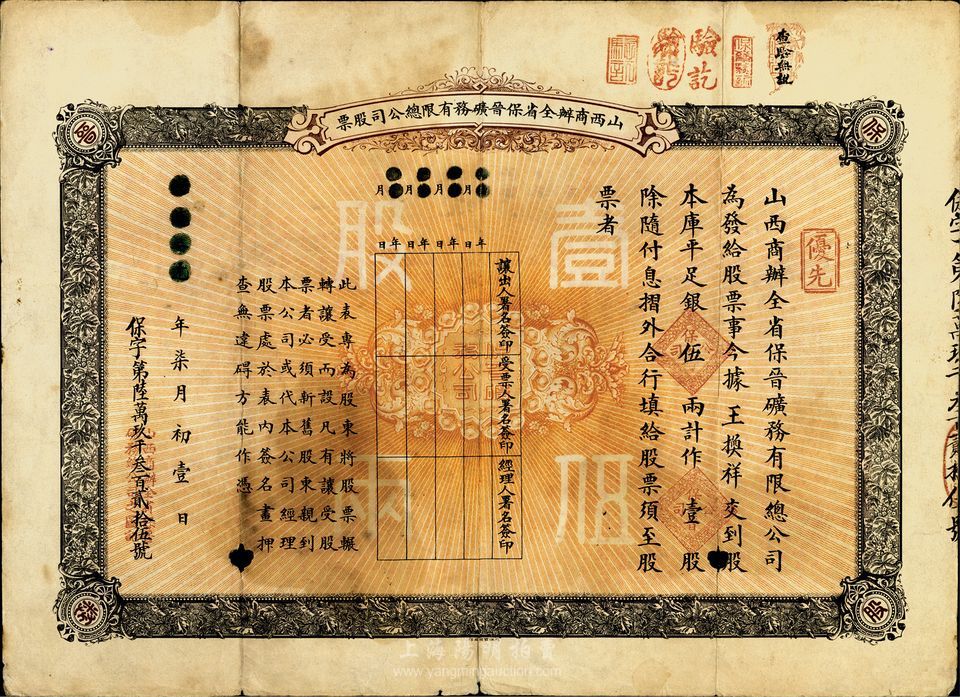 查驗無訛
驗訖
山西商辦全省保晉礦務有限總公司股票
保
晉
優先
山西商辦全省保晉礦務有限總公司
為發給股票事今據王換祥交到股
本庫平足銀伍兩計作壹股
除隨付息摺外合行填給股票須至股
票者
壹股
伍兩
月 月 月 月
年 日 年 日 年 日 年 日
讓出人署名簽印
受票人署名簽印
經理人署名簽印
此表專為股東將股票輾
轉讓受而設凡有讓受股
票者必須新舊股東親到
本公司或代本公司經理
股票處於表內簽名畫押
查無違碍方能作憑
年柒月初壹日
保字第陸萬玖千叁百貳拾伍號
股
上海陽明拍賣
www.yangmingauction.com